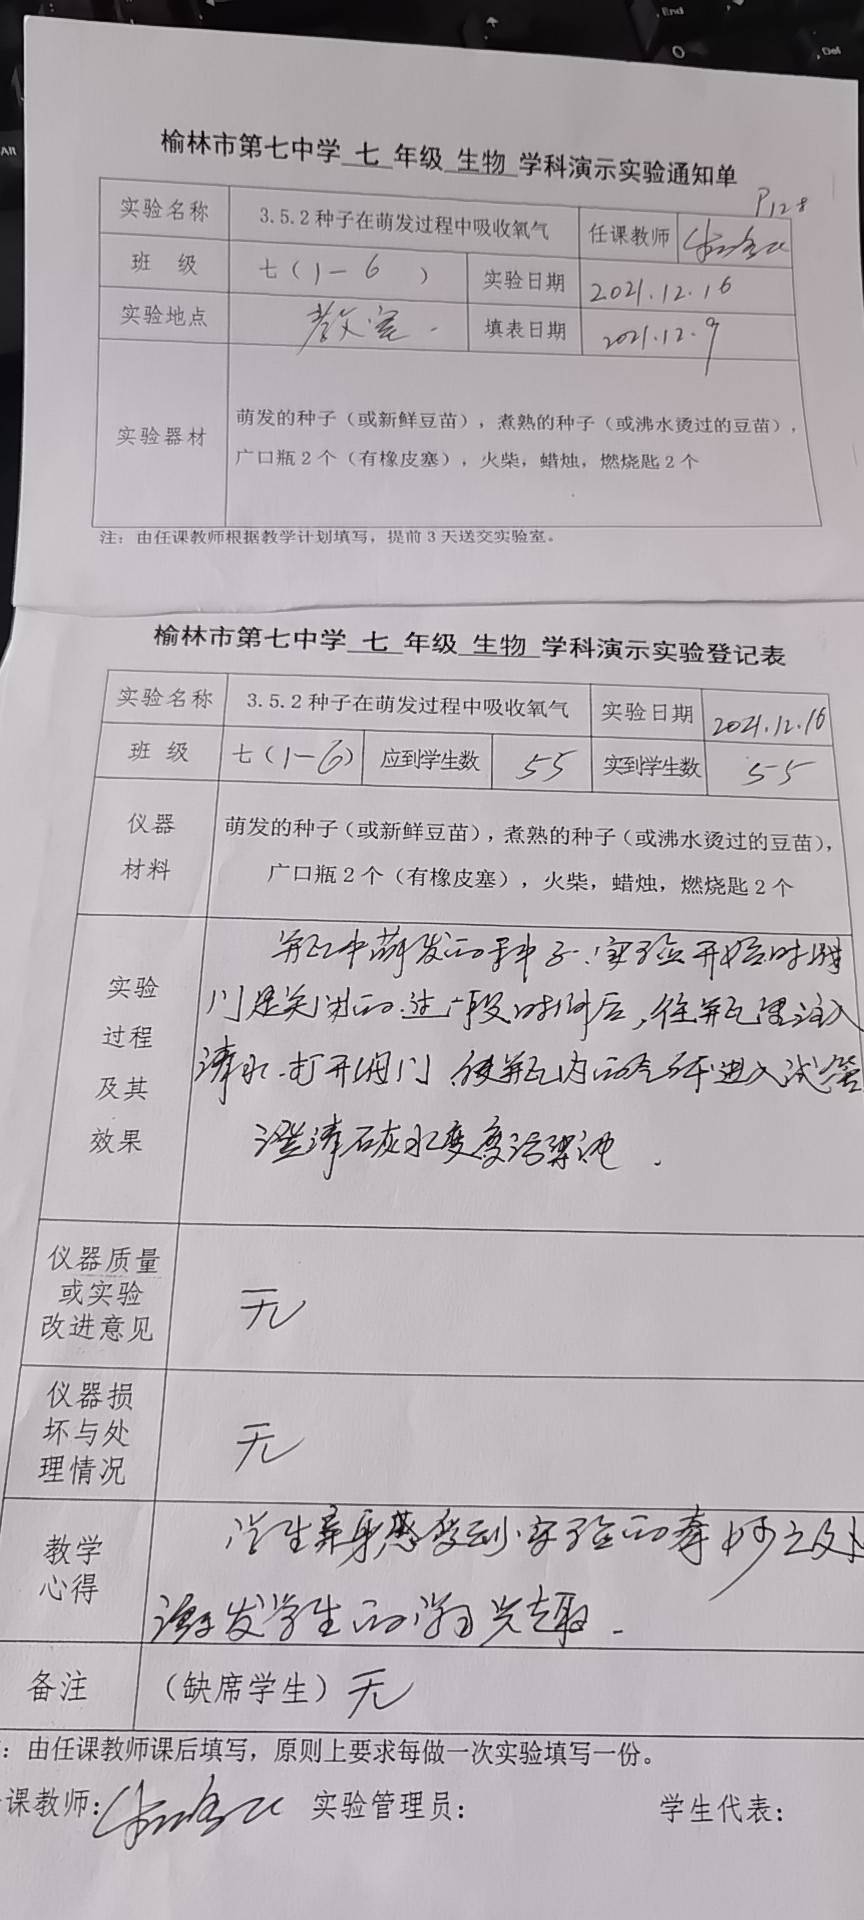 榆林市第七中学 七 年级 生物 学科演示实验通知单
P128
实验名称 3.5.2种子在萌发过程中吸收氧气 任课教师
班 级 七（1-6） 实验日期 2021.12.16
实验地点 教室. 填表日期 2021.12.9
实验器材 萌发的种子（或新鲜豆苗），煮熟的种子（或沸水烫过的豆苗），
广口瓶2个（有橡皮塞），火柴，蜡烛，燃烧匙2个
注：由任课教师根据教学计划填写，提前3天送交实验室。
榆林市第七中学 七 年级 生物 学科演示实验登记表
实验名称 3.5.2种子在萌发过程中吸收氧气 实验日期 2021.12.16
班 级 七（1-6） 应到学生数 55 实到学生数 55
仪器材料 萌发的种子（或新鲜豆苗），煮熟的种子（或沸水烫过的豆苗），
广口瓶2个（有橡皮塞），火柴，蜡烛，燃烧匙2个
实验过程及其效果 瓶中萌发的种子.实验开始时
门是关闭的.过一段时间后，往瓶里注入
清水.打开阀门.使瓶内的气体进入试管
澄清石灰水变
仪器质量或实验改进意见 无
仪器损坏与处理情况 无
教学心得 学生亲身感受到实验的奇妙之处
激发学生的学习兴趣.
备注 （缺席学生）无
：由任课教师课后填写，原则上要求每做一次实验填写一份。
课教师： 实验管理员： 学生代表：